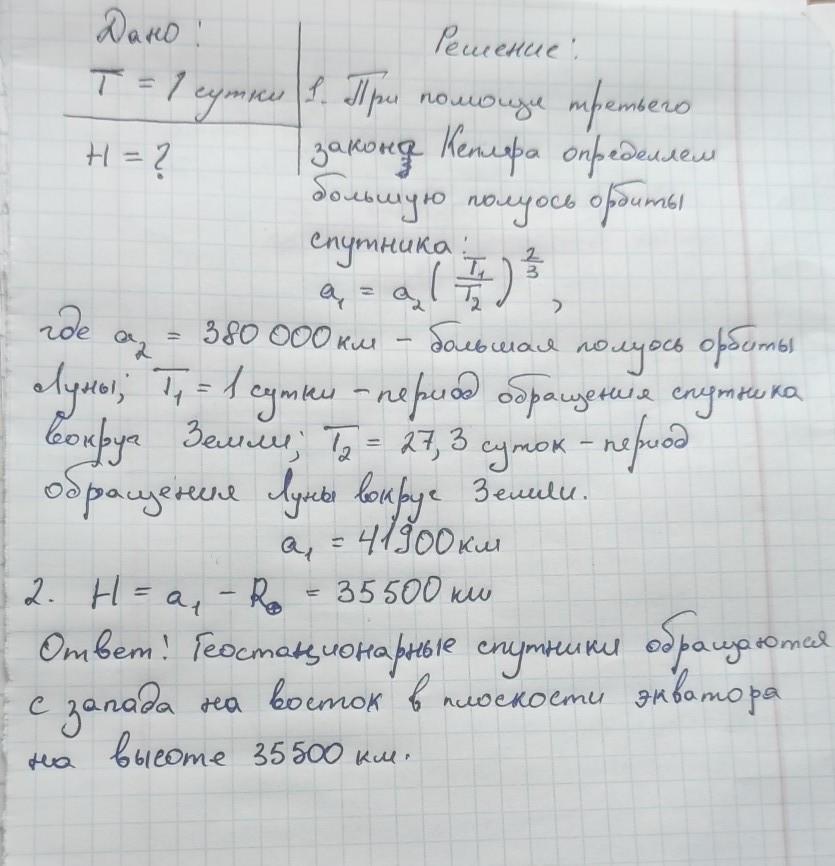 Дано:
Т = 1 сутки
Н = ?
Решение:
1. При помощи третьего
закона Кеплера определяем
большую полуось орбиты
спутника:
a₁ = a₂ (T₁/T₂)^(2/3),
где a₂ = 380 000 км – большая полуось орбиты
Луны; T₁ = 1 сутки – период обращения спутника
вокруг Земли; T₂ = 27,3 суток – период
обращения Луны вокруг Земли.
a₁ = 41900 км
2. H = a₁ – R⊕ = 35500 км
Ответ! Геостационарные спутники обращаются
с запада на восток в плоскости экватора
на высоте 35500 км.